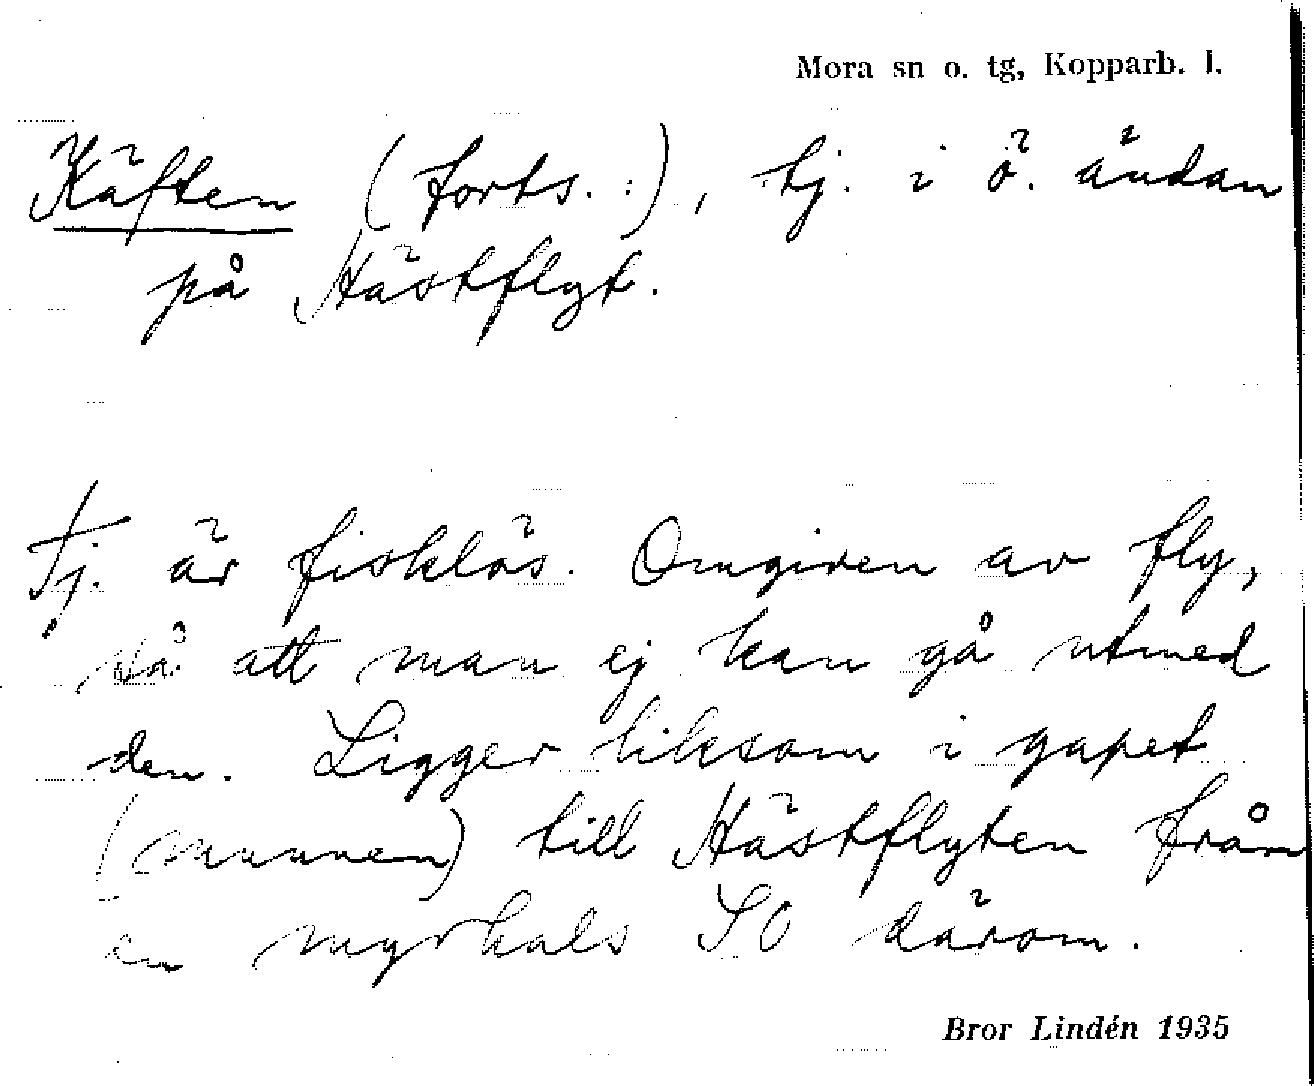 Mora sn o. tg, Kopparb. l.
Käften (forts. :), tj. i ö. ändan
på Hästflyt.
Tj. är fisklös. Omgiven av fly,
så att man ej kan gå utmed
den. Ligger liksom i gapet
(munnen) till Hästflyten från
en myrhals SO därom.
Bror Lindén 1935